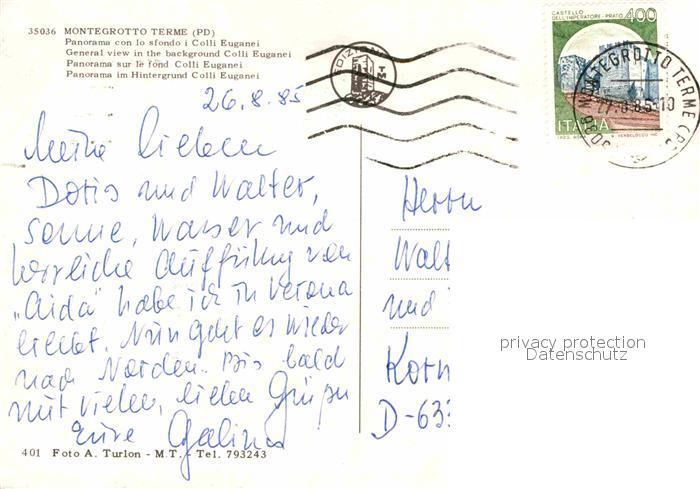 35036 MONTEGROTTO TERME (PD)
Panorama con lo sfondo i Colli Euganei
General view in the background Colli Euganei
Panorama sur le fond Colli Euganei
Panorama im Hintergrund Colli Euganei
CASTELLO
DELL'IMPERATORE - PRATO 400
ITALIA
EDIZIONI
TM
MONTEGROTTO TERME
26.8.85
Meine lieben
Doris und Walter,
Sonne, Wasser und
herrliche Aufführung von
"Aida" habe ich in Verona
erlebt. Nun geht es wieder
nach Norden. Bis bald
mit vielen, lieben Grüßen
Eure Galina
Herrn
Walt
und
Korn
D-63
privacy protection
Datenschutz
401 Foto A. Turlon - M.T. - Tel. 793243